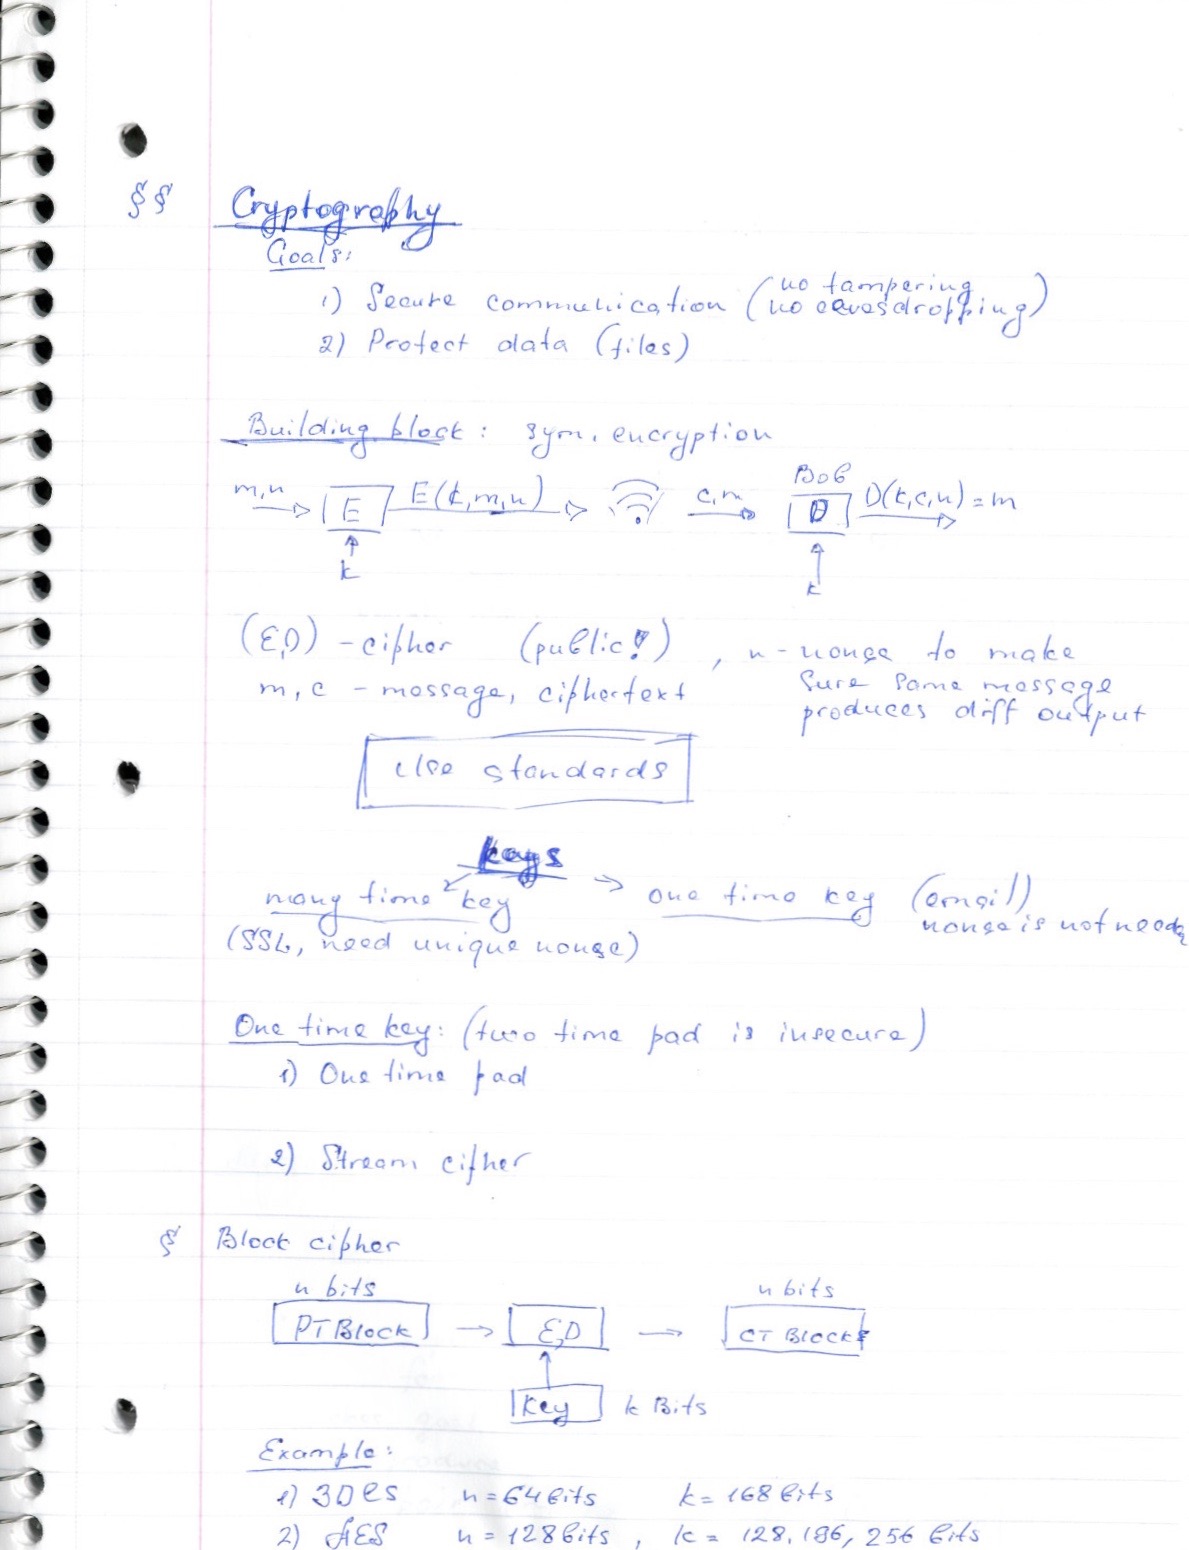 §§ Cryptography
Goals:
1) Secure communication (no tampering
no eavesdropping)
2) Protect data (files)
Building block: sym. encryption
Bob
m,n E E(k,m,n) c,n D D(k,c,n)=m
k k
(E,D) - cipher (public!) , n - nonse to make
m, c - message, ciphertext sure same message
produces diff output
Use standards
keys
many time key one time key (email)
(SSL, need unique nonse) nonse is not need
One time key: (two time pad is insecure)
1) One time pad
2) Stream cipher
§ Block cipher
n bits n bits
PT Block E,D CT Block
Key k Bits
Example:
1) 3DES n=64 bits k= 168 bits
2) AES n = 128 bits , k = 128, 196, 256 bits